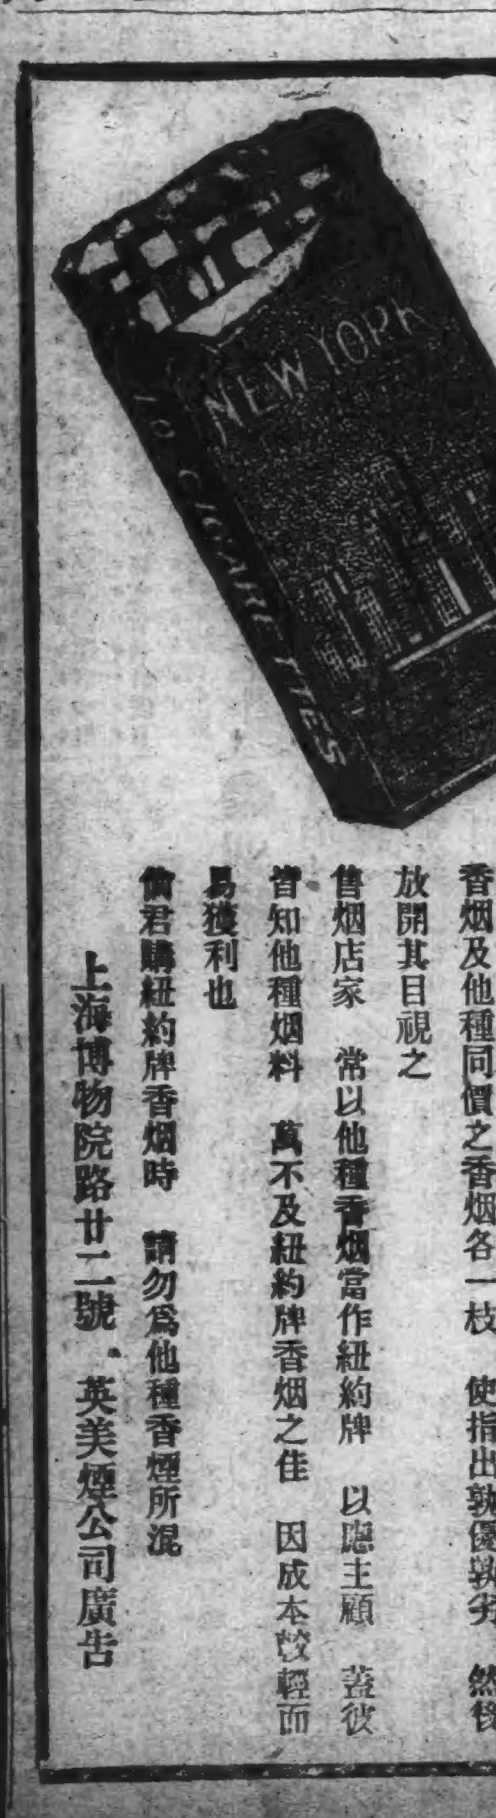 NEW YORK
10 CIGARETTES
香烟及他種同價之香烟各一枝　使指出孰優孰劣　然後
放開其目視之
售烟店家　常以他種香烟當作紐約牌　以應主顧　蓋彼
皆知他種烟料　萬不及紐約牌香烟之佳　因成本較輕而
易獲利也
倘君購紐約牌香烟時　請勿爲他種香煙所混
上海博物院路廿二號　英美煙公司廣告